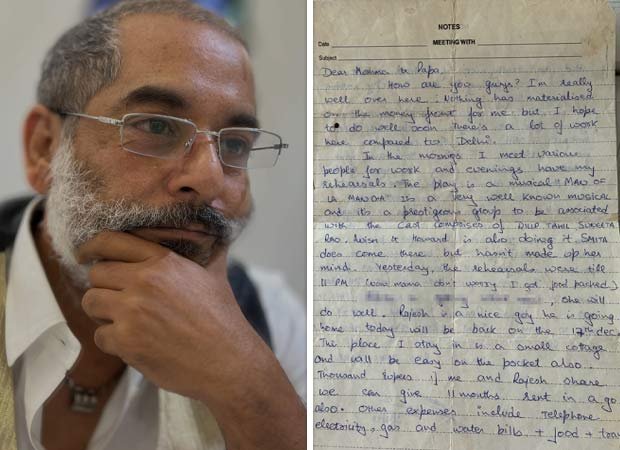 NOTES
Date MEETING WITH
Subject
Dear Mamma & Papa,
How are you guys? I'm really
well over here. Nothing has materialised
on the money front for me but I hope
to do well soon there's a lot of work
here compared to Delhi.
In the mornings I meet various
people for work and evenings have my
rehearsals. The play is a musical "MAN OF
LA MANCHA" Its a very well known musical
and its a prestigious group to be associated
with. the Cast comprises of DILIP TAHIL SUCHETA
RAO. & Howard is also doing it. SMITA
does come there but hasn't made up her
mind. Yesterday, the rehearsals were till
11 PM (now mama don't worry I got food packed)
, She will
do well. Rajesh is a nice guy he is going
home today will be back on the 17th dec.
The place I stay in is a small cottage
and will be easy on the pocket also.
Thousand rupees if me and Rajesh share
we can give 11 months rent in a go
also. Other expenses include Telephone
electricity, gas and water bills + food + tra